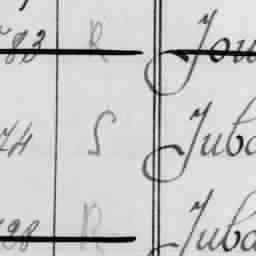 83 R Jou
74 S Juba
98 R Juba